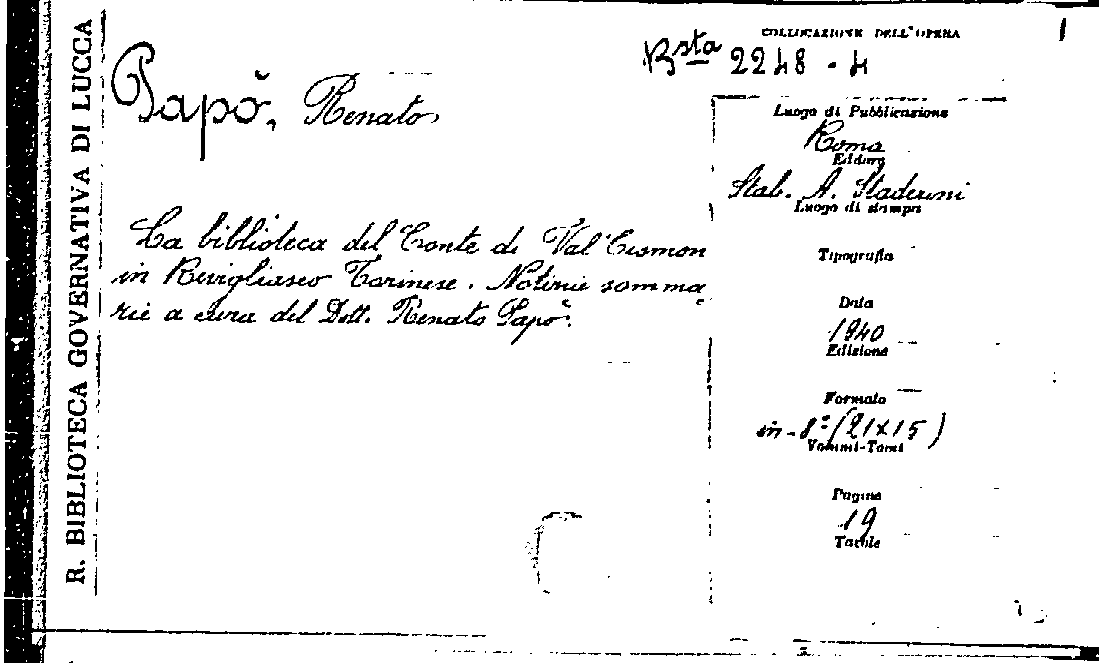 R. BIBLIOTECA GOVERNATIVA DI LUCCA
COLLOCAZIONE DELL'OPERA
Bsta 2248 - 4
Papò, Renato
La biblioteca del Conte di Val Cismon
in Revigliasco Torinese. Notizie somma
rie a cura del Dott. Renato Papò.
Luogo di Pubblicazione
Roma
Editore
Stab. A. Staderini
Luogo di stampa
Tipografia
Data
1940
Edizione
Formato
in-8° (21x15)
Volumi-Tomi
Pagine
19
Tavole